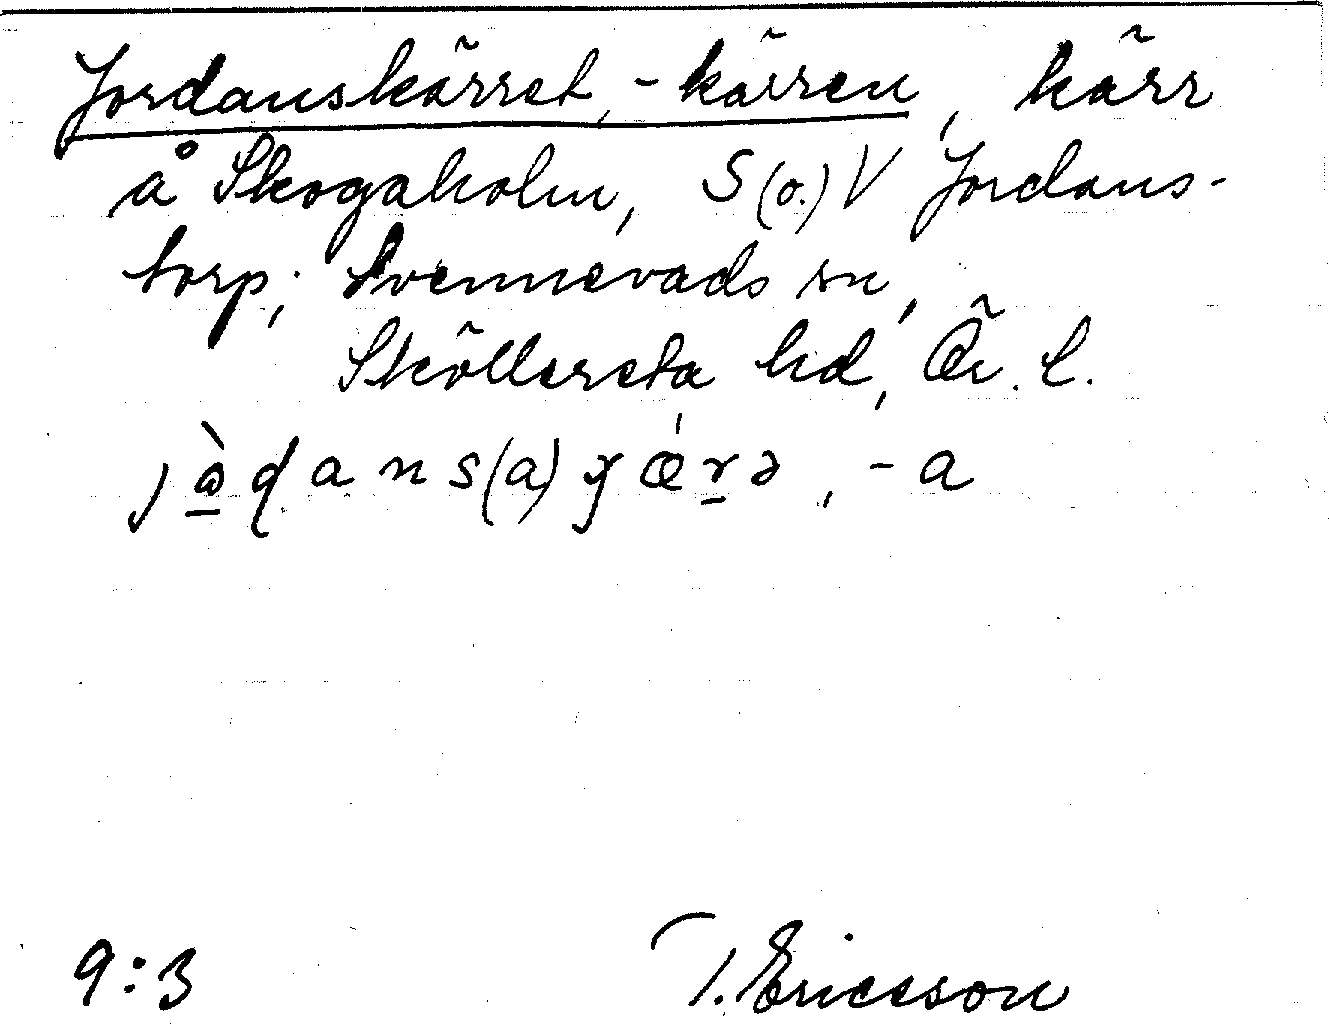 Jordanskärret, -kärren, kärr
å Skogaholm, S(o.)V Jordans-
torp; Svennevads sn,
Sköllersta hd, Ör. l.
, -a
9:3 T. Ericsson